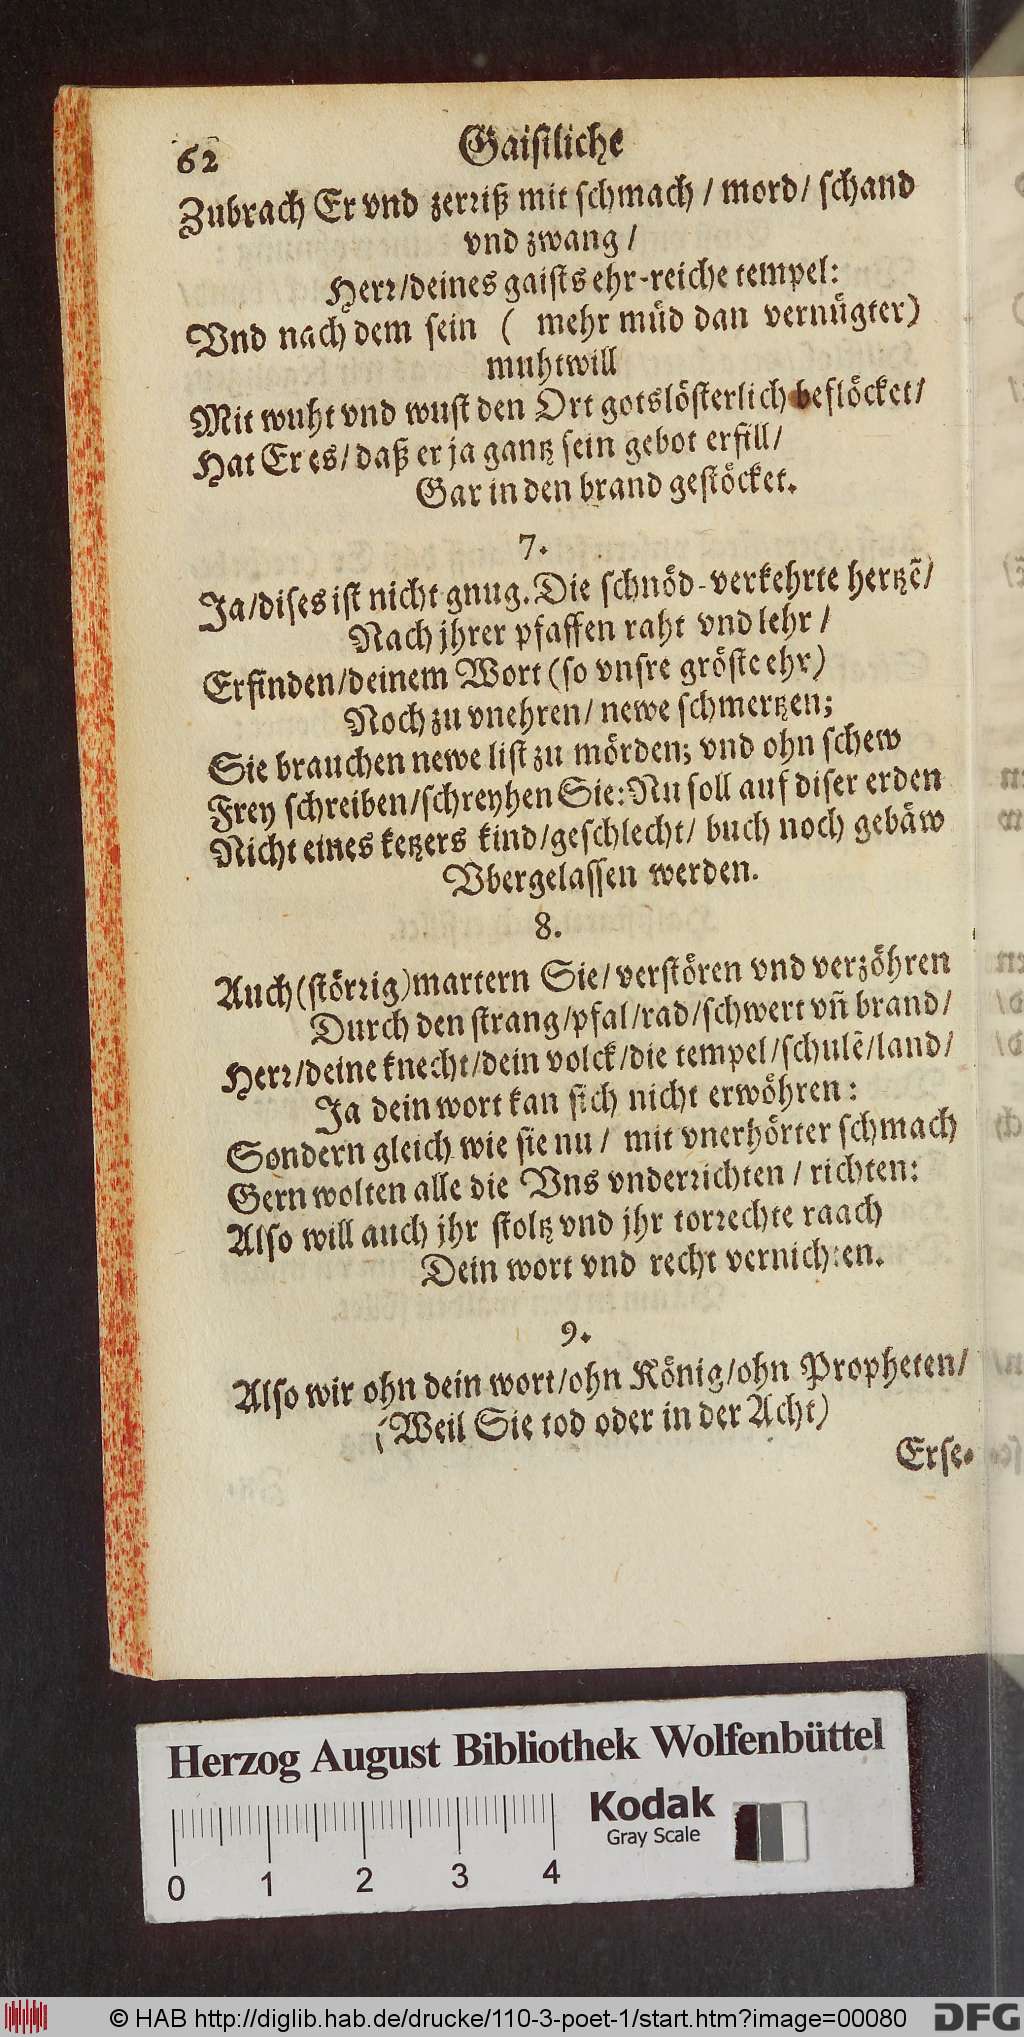 62
Gaistliche
Zubrach Er vnd zerriß mit schmach / mord/ schand
vnd zwang /
Herr/deines gaists ehr-reiche tempel:
Vnd nach dem sein ( mehr müd dan vernügter)
muhtwill
Mit wuht vnd wust den Ort gotslösterlich beflöcket/
Hat Er es/ daß er ja gantz sein gebot erfill/
Gar in den brand gestöcket.
7.
Ja/dises ist nicht gnug. Die schnöd-verkehrte hertzẽ/
Nach jhrer pfaffen raht vnd lehr /
Erfinden/deinem Wort (so vnsre gröste ehr)
Noch zu vnehren/ newe schmertzen;
Sie brauchen newe list zu mörden; vnd ohn schew
Frey schreiben/schreyhen Sie: Nu soll auf diser erden
Nicht eines ketzers kind/geschlecht/ buch noch gebäw
Vbergelassen werden.
8.
Auch (störrig) martern Sie/ verstören vnd verzöhren
Durch den strang/pfal/rad/schwert vñ brand/
Herr/deine knecht/dein volck/die tempel/schulẽ/land/
Ja dein wort kan sich nicht erwöhren:
Sondern gleich wie sie nu / mit vnerhörter schmach
Gern wolten alle die Vns vnderrichten / richten:
Also will auch jhr stoltz vnd jhr torrechte raach
Dein wort vnd recht vernichten.
9.
Also wir ohn dein wort/ohn König/ohn Propheten/
(Weil Sie tod oder in der Acht)
Erse-
Herzog August Bibliothek Wolfenbüttel
Kodak
Gray Scale
0 1 2 3 4
© HAB http://diglib.hab.de/drucke/110-3-poet-1/start.htm?image=00080
DFG